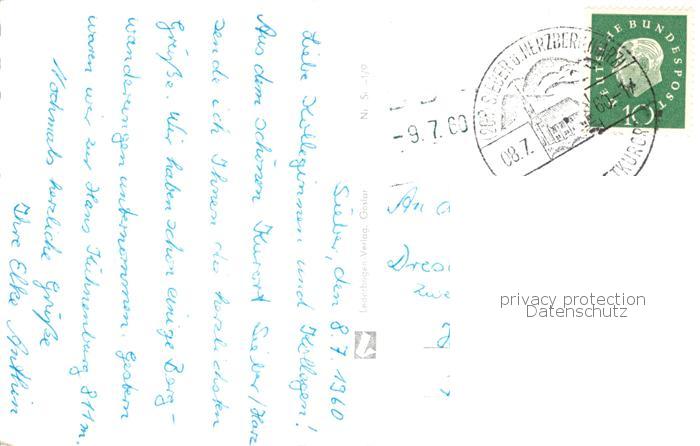 Sieber, den 8.7.1960
Liebe Kolleginnen und Kollegen!
Aus dem schönen Kurort Sieber/Harz
sende ich Ihnen die herzlichsten
Grüße. Wir haben schon einige Berg-
wanderungen unternommen. Gestern
waren wir zur Hans Kühnenburg 811m.
Nochmals herzliche Grüße
Ihre Elke
Nr. Si
Lederbogen-Verlag, Goslar
-9.7.60
SIEBER Ü. HERZBERG (HARZ)
08.7.60
KURORT
DEUTSCHE BUNDESPOST
10
An d
Dres
Zwe
privacy protection
Datenschutz